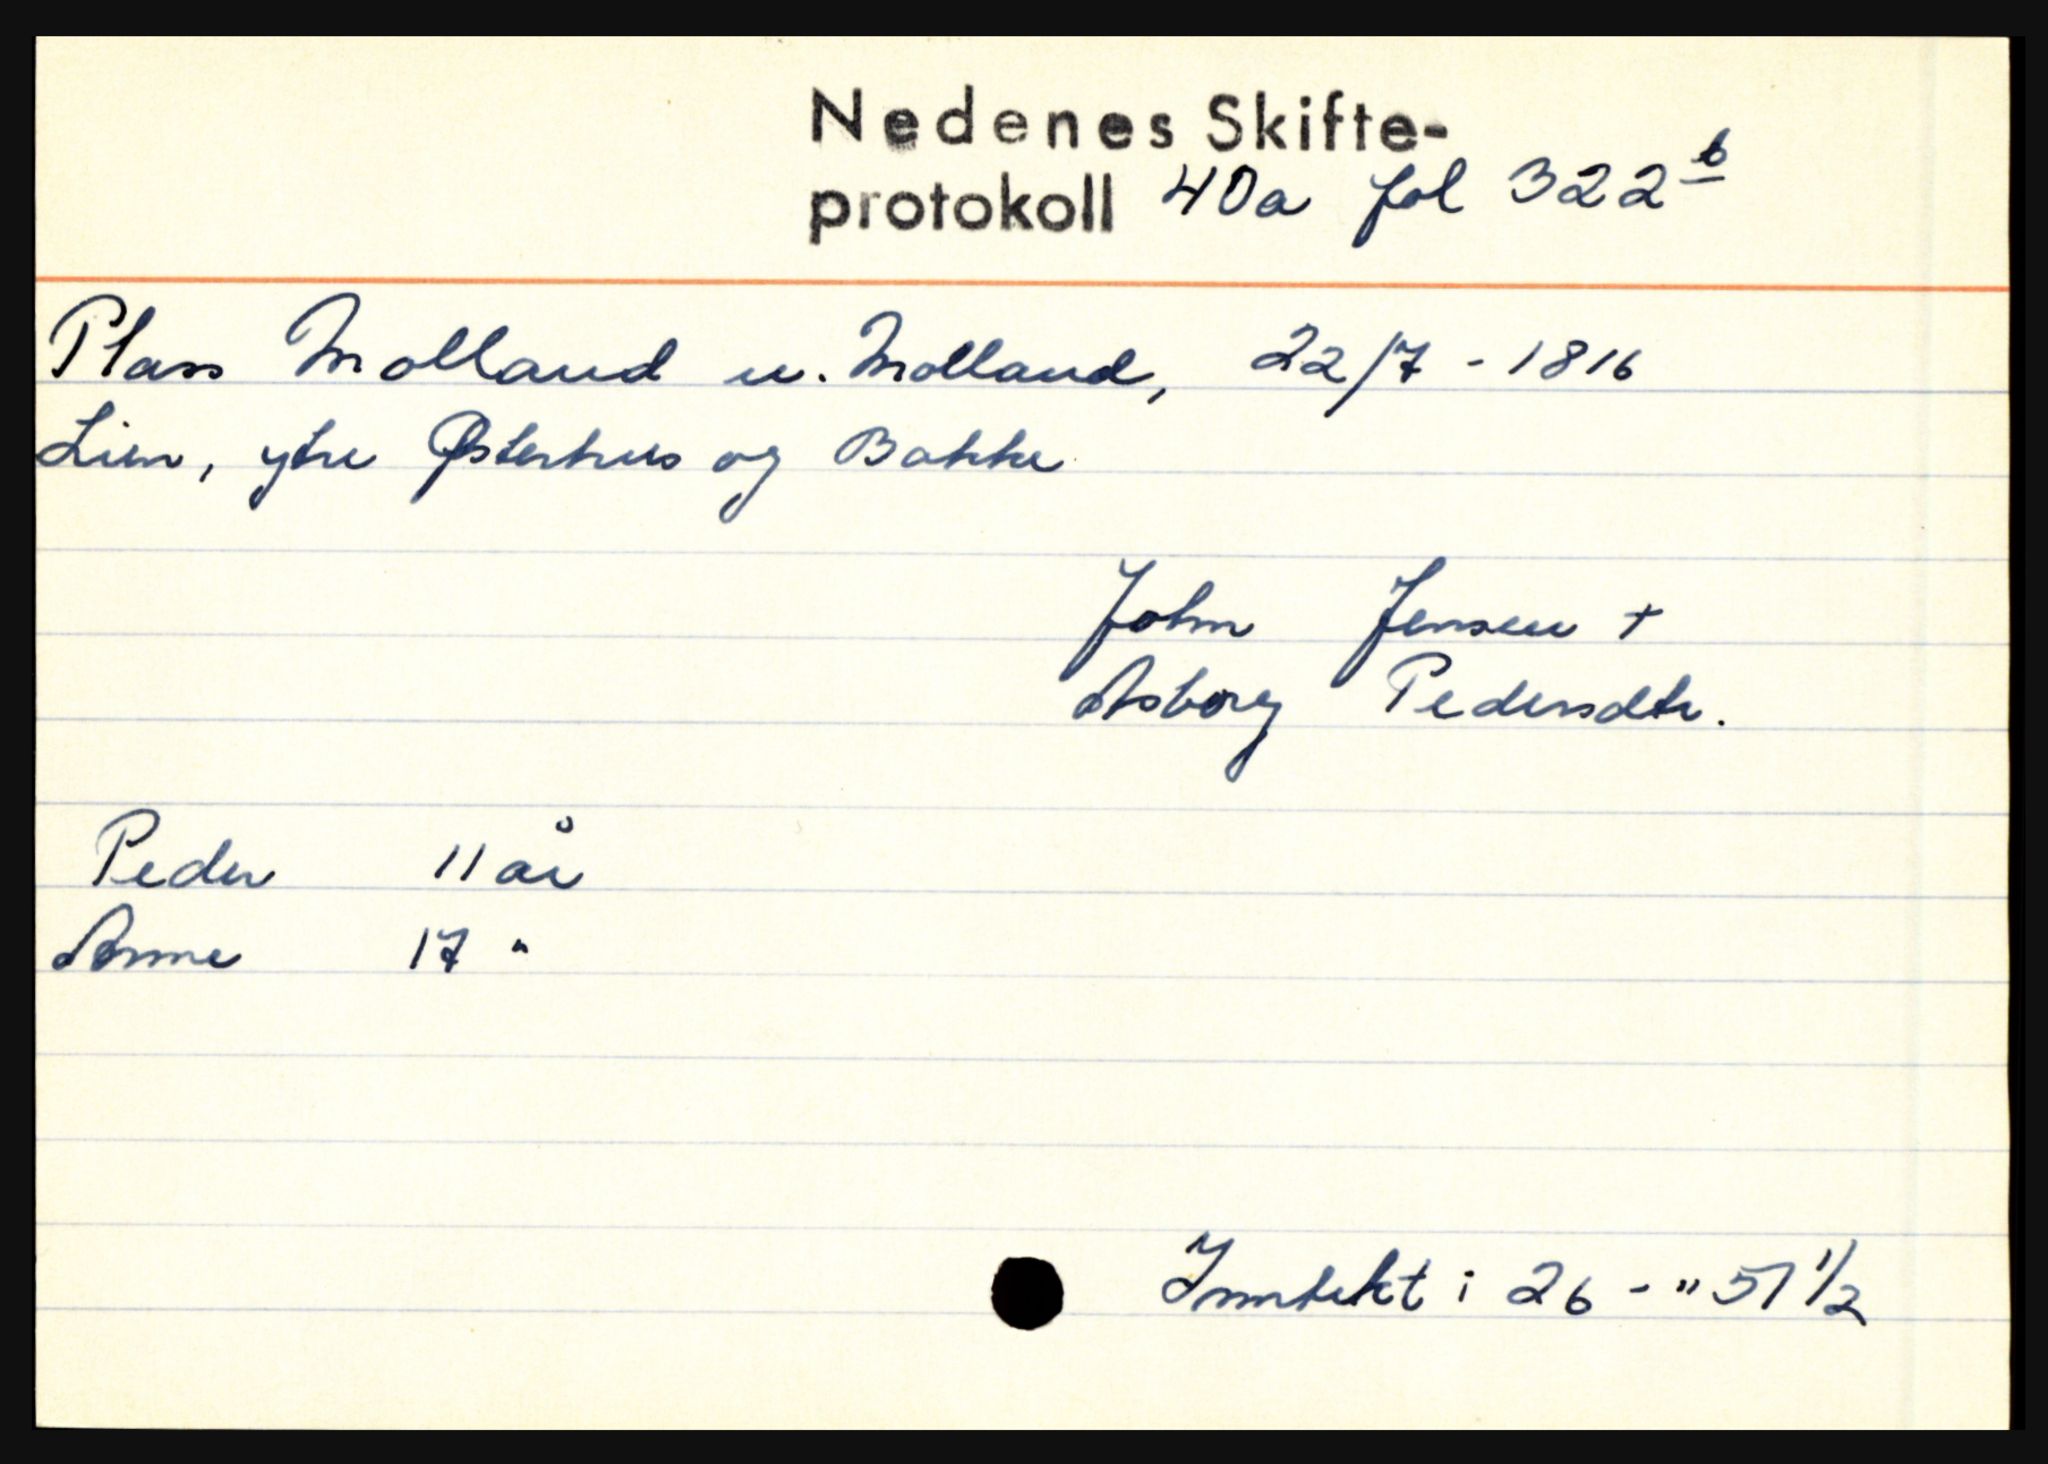 Nedenes Skifte-
protokoll 40a fol 322 b
Plass Molland u. Molland, 22/7 - 1816
Lien, ytre Østerhus og Bakke
John Jensen +
Asborg Pedersdtr.
Peder 11 år
Anne 17 "
Inntekt i 26 - " 51 1/2